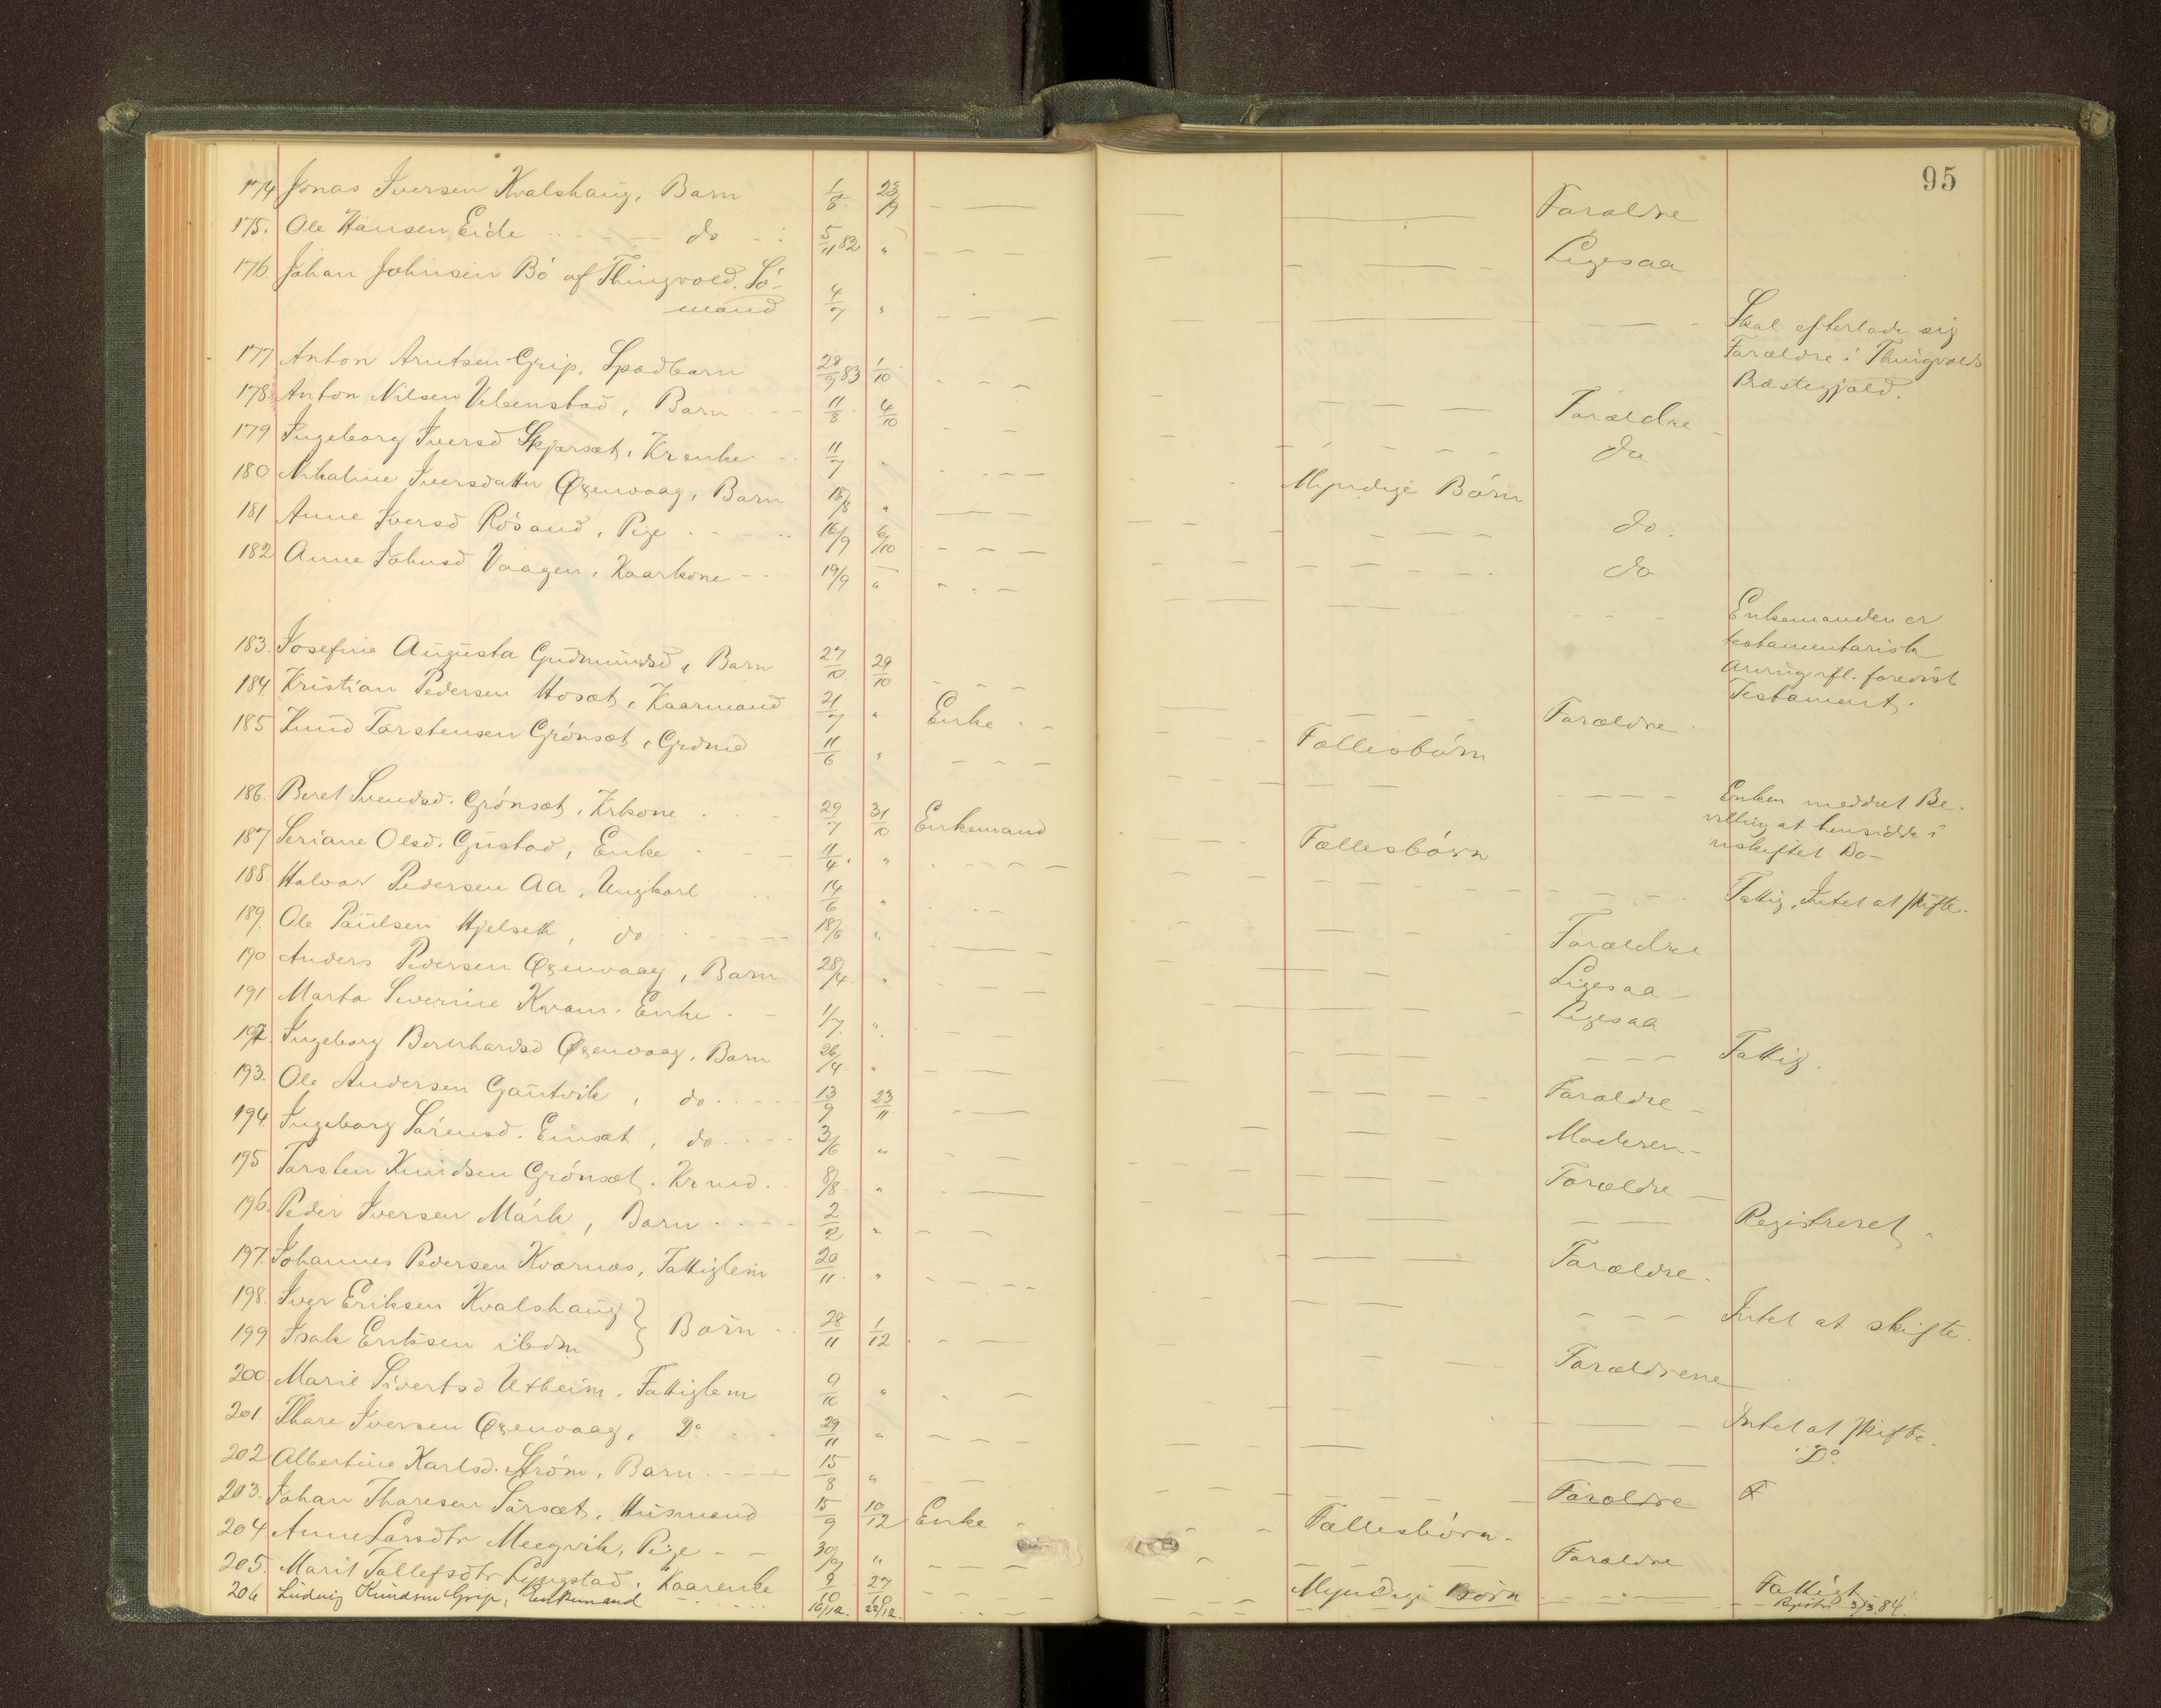 95
174 Jonas Iversen Kvalshaug, Barn 1/8 23/9 Forældre
175. Ole Hansen Eide do 5/11 82 " Ligesaa
176. Johan Johnsen Bö af Thingvold, Sö-
mand 4/7 " Skal efterlade sig
Forældre i Thingvolds
Præstegjæld.
177 Anton Arntsen Grip, Spædbarn 28/9 83 1/10 Forældre
178. Anton Nilsen Vebenstad, Barn 11/8 4/10 do
179 Ingeborg Iversd Skjørsæt, Kr enke 11/7 " Myndige Börn
180 Nikoline Iversdatter Øxenvaag, Barn 18/8 " do.
181 Anne Iversd Rösand, Pige 16/9 6/10 do
182 Anne Johnsd Vaagen, Kaarkone 19/9 " Enkemanden er
testamentarisk
Arving ifl. forevist
Testament.
183. Josefine Augusta Gudmundsd, Barn 27/10 29/10 Forældre
184. Kristian Pedersen Hosæt, Kaarmand 21/7 " Enke Fællesbörn
185 Knud Torstensen Grönsæt, Grdmd 11/6 " Enken meddelt Be-
villing at hensidde i
uskiftet Bo-
186. Beret Svendsd. Grönsæt, Krkone 29/7 31/10 Enkemand Fællesbörn
187 Seriane Olsd. Gustad, Enke 11/4 " Fattig, Intet at skifte.
188. Halvor Pedersen Aa, Ungkarl 14/6 " Forældre
189. Ole Paulsen Hjelseth, do 18/6 " Ligesaa
190 Anders Pedersen Øxenvaag, Barn 28/4 " Ligesaa
191 Marta Severine Kvam. Enke 1/7 " Fattig.
192. Ingeborg Bernhardsd Øxenvaag, Barn 26/4 " Forældre
193. Ole Andersen Gautvik, do 13/9 23/11 Moderen
194. Ingeborg Sörensd. Einsæt, do 3/6 " Forældre
195 Torsten Knudsen Grönsæt. Kr md. 8/8 " Registreret.
196. Peder Iversen Mörk, Barn 2/2 " Forældre.
197. Johannes Pedersen Kvarnæs, Fattiglem 20/11 " Intet at skifte.
198. Iver Eriksen Kvalshaug } Börn 28/11 1/12 Forældrene
199 Isak Eriksen ibdm
200. Marie Sivertsd Utheim, Fattiglem 9/10 " Intet at skifte.
201. Thore Iversen Øxenvaag, Do 29/11 " Do
202 Albertine Karlsd. Ström, Barn 15/8 " Forældre
203. Johan Thoresen Sörsæt, Husmand 15/9 10/12 Enke Fællesbörn.
204 Anne Larsdtr Meegvik, Pige 30/9 " Forældre
205. Marit Tollefsdtr Lyngstad, Kaarenke 9/10 27/10 Myndige Börn Fattigt
206 Ludvig Knudsen Grip, Enkemand 16/12. 22/12. Registr 3/3 84.